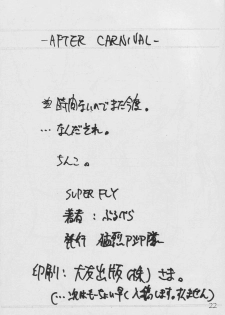 -AFTER CARNIVAL-
時間ないのでまた今度。
…なんだそれ。
ちんこ。
SUPER FLY
著者：ぶるべら
発行
印刷：大友出版(株)さま。
(…次はもーちょい早く入稿します。すいません)
22